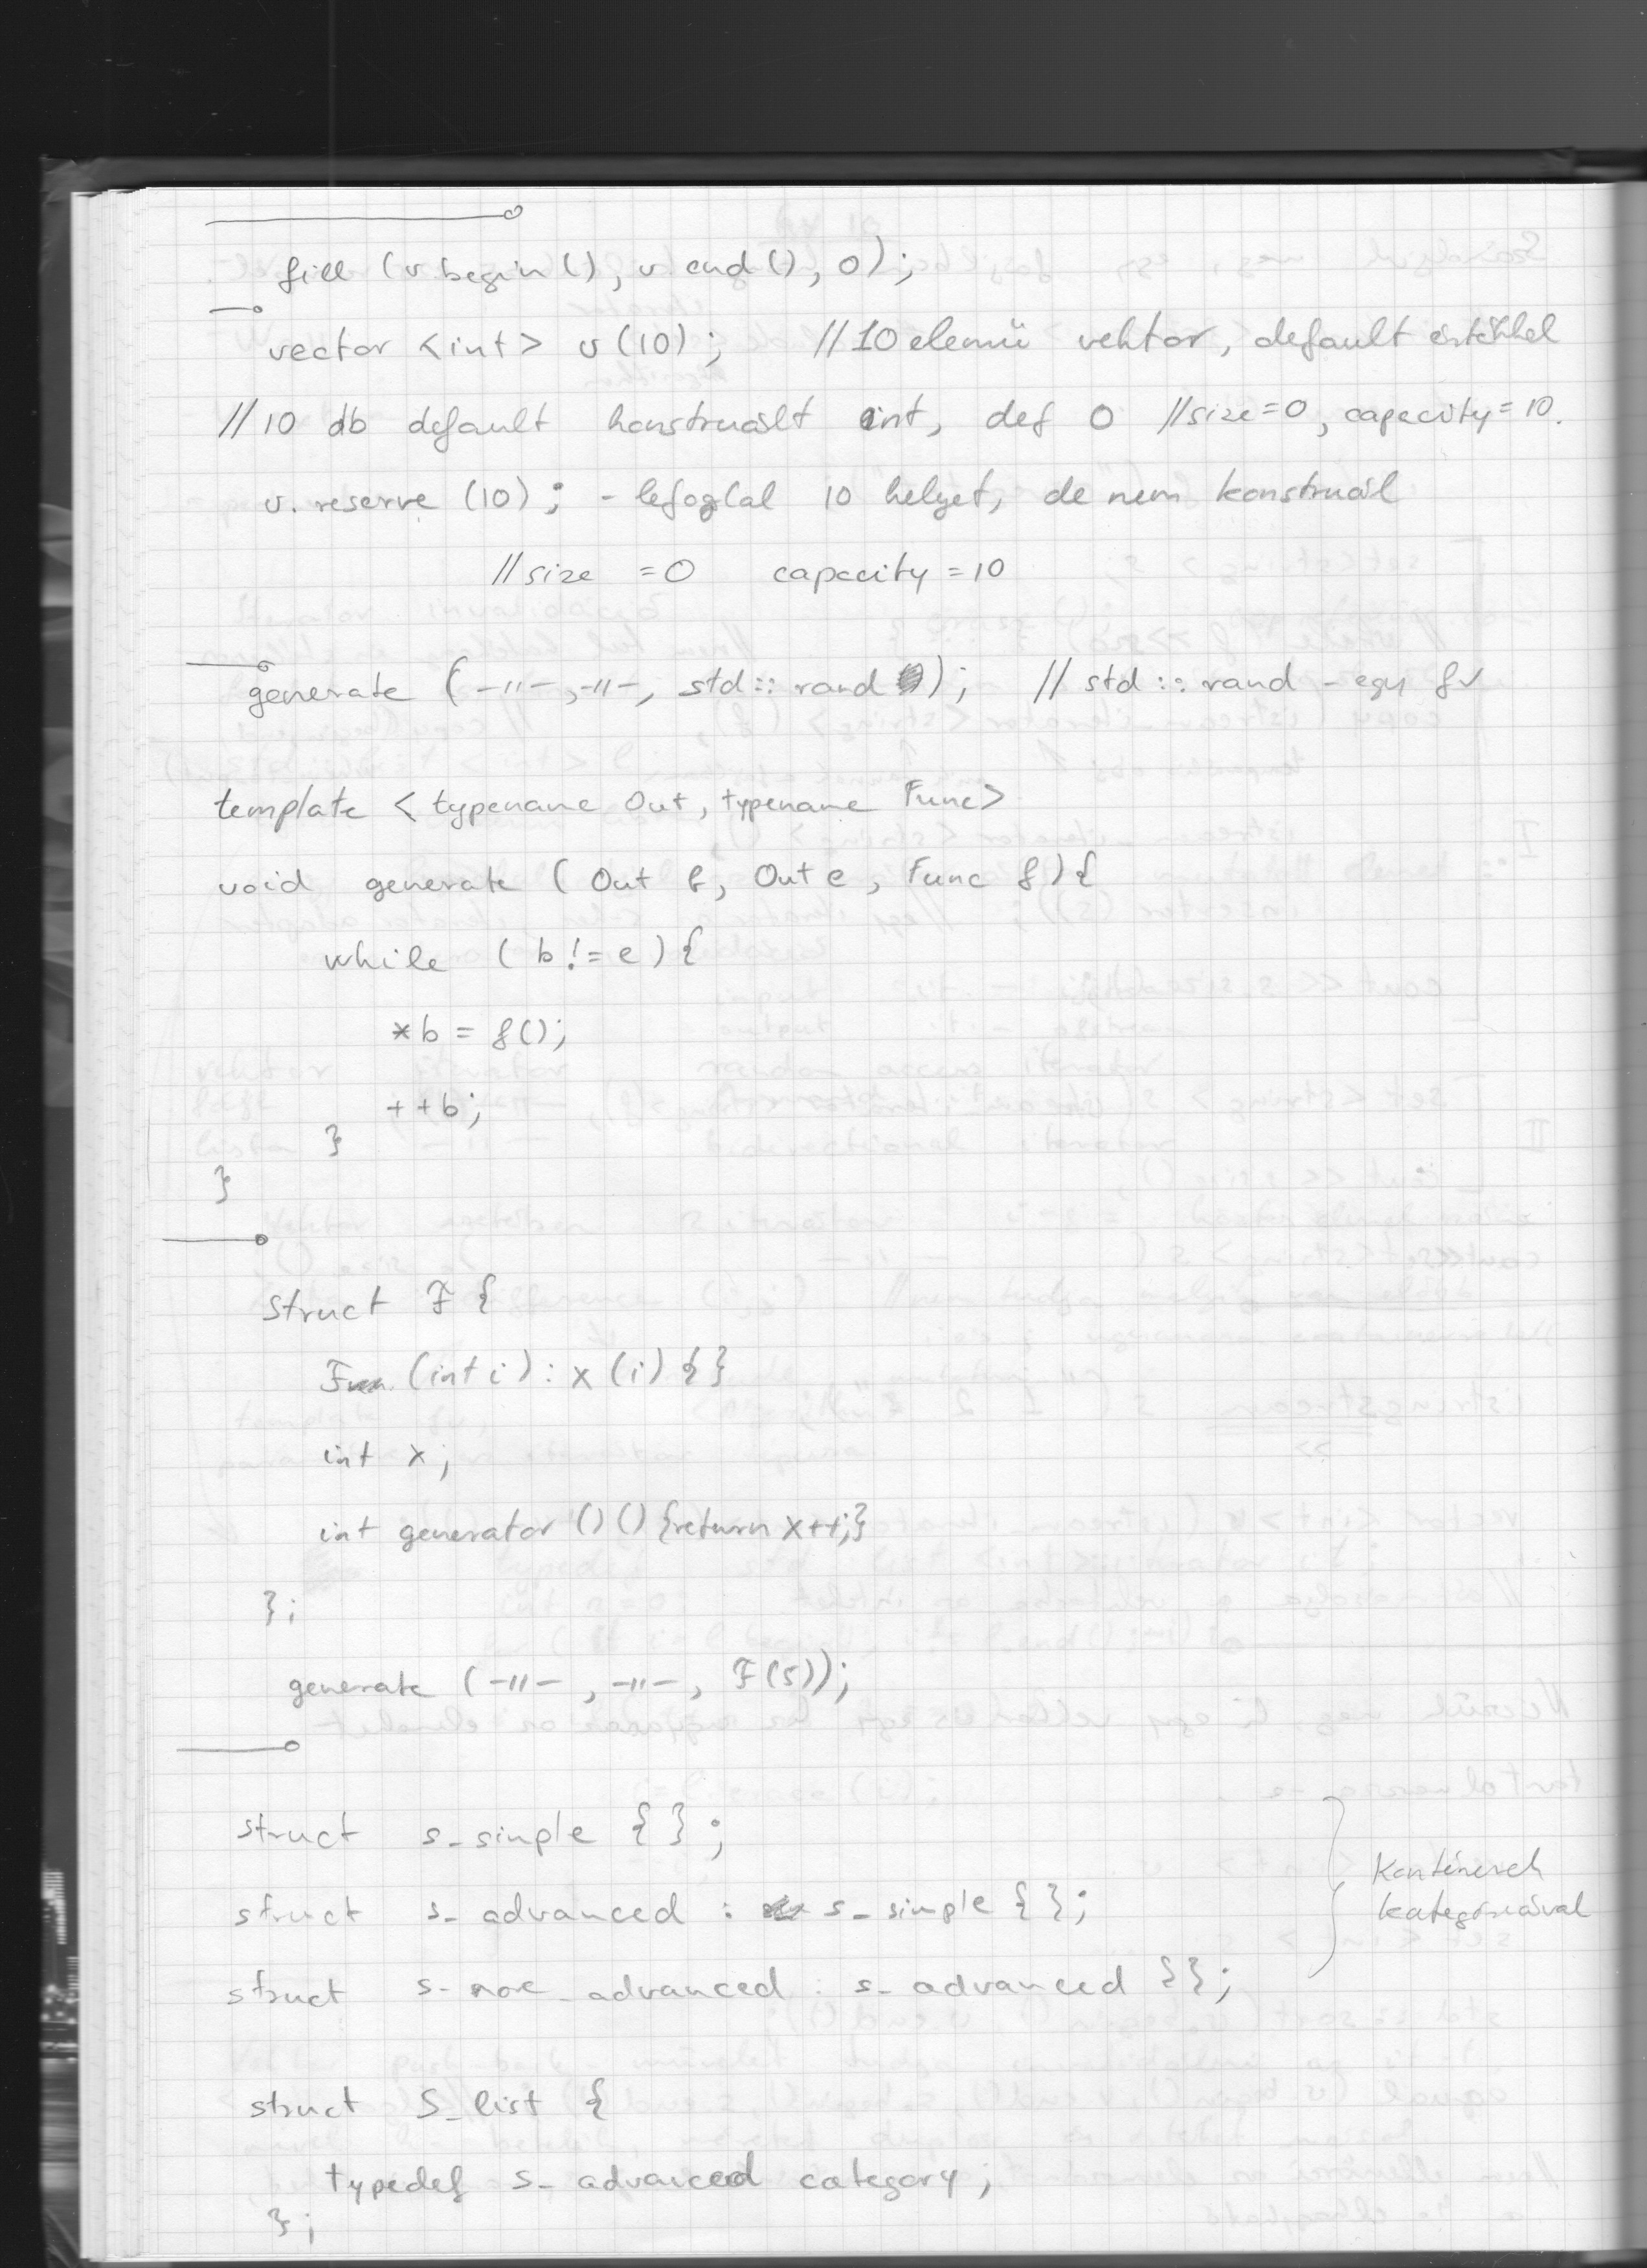 fill (v begin (), v end (), 0);
vector <int> v (10); // 10 elemű vektor, default értékkel
// 10 db default konstruált int, def 0 // size=0, capacity=10.
v. reserve (10); - lefoglal 10 helyet, de nem konstruál
// size =0 capacity=10
generate (-"-, -"-, std:: rand ); // std :: rand - egy fv
template < typename Out, typename Func>
void generate ( Out b, Out e, Func f){
while (b != e) {
*b = f();
++b;
}
}
struct F {
F (int i) : x (i) { }
int x;
int generator ()() {return x++;}
};
generate (-"-, -"-, F(5));
struct s_simple { };
struct s_advanced : s_simple { };
struct s_more_advanced : s_advanced { };
Konténerek
kategóriával
struct S_list {
typedef s_advanced category;
};